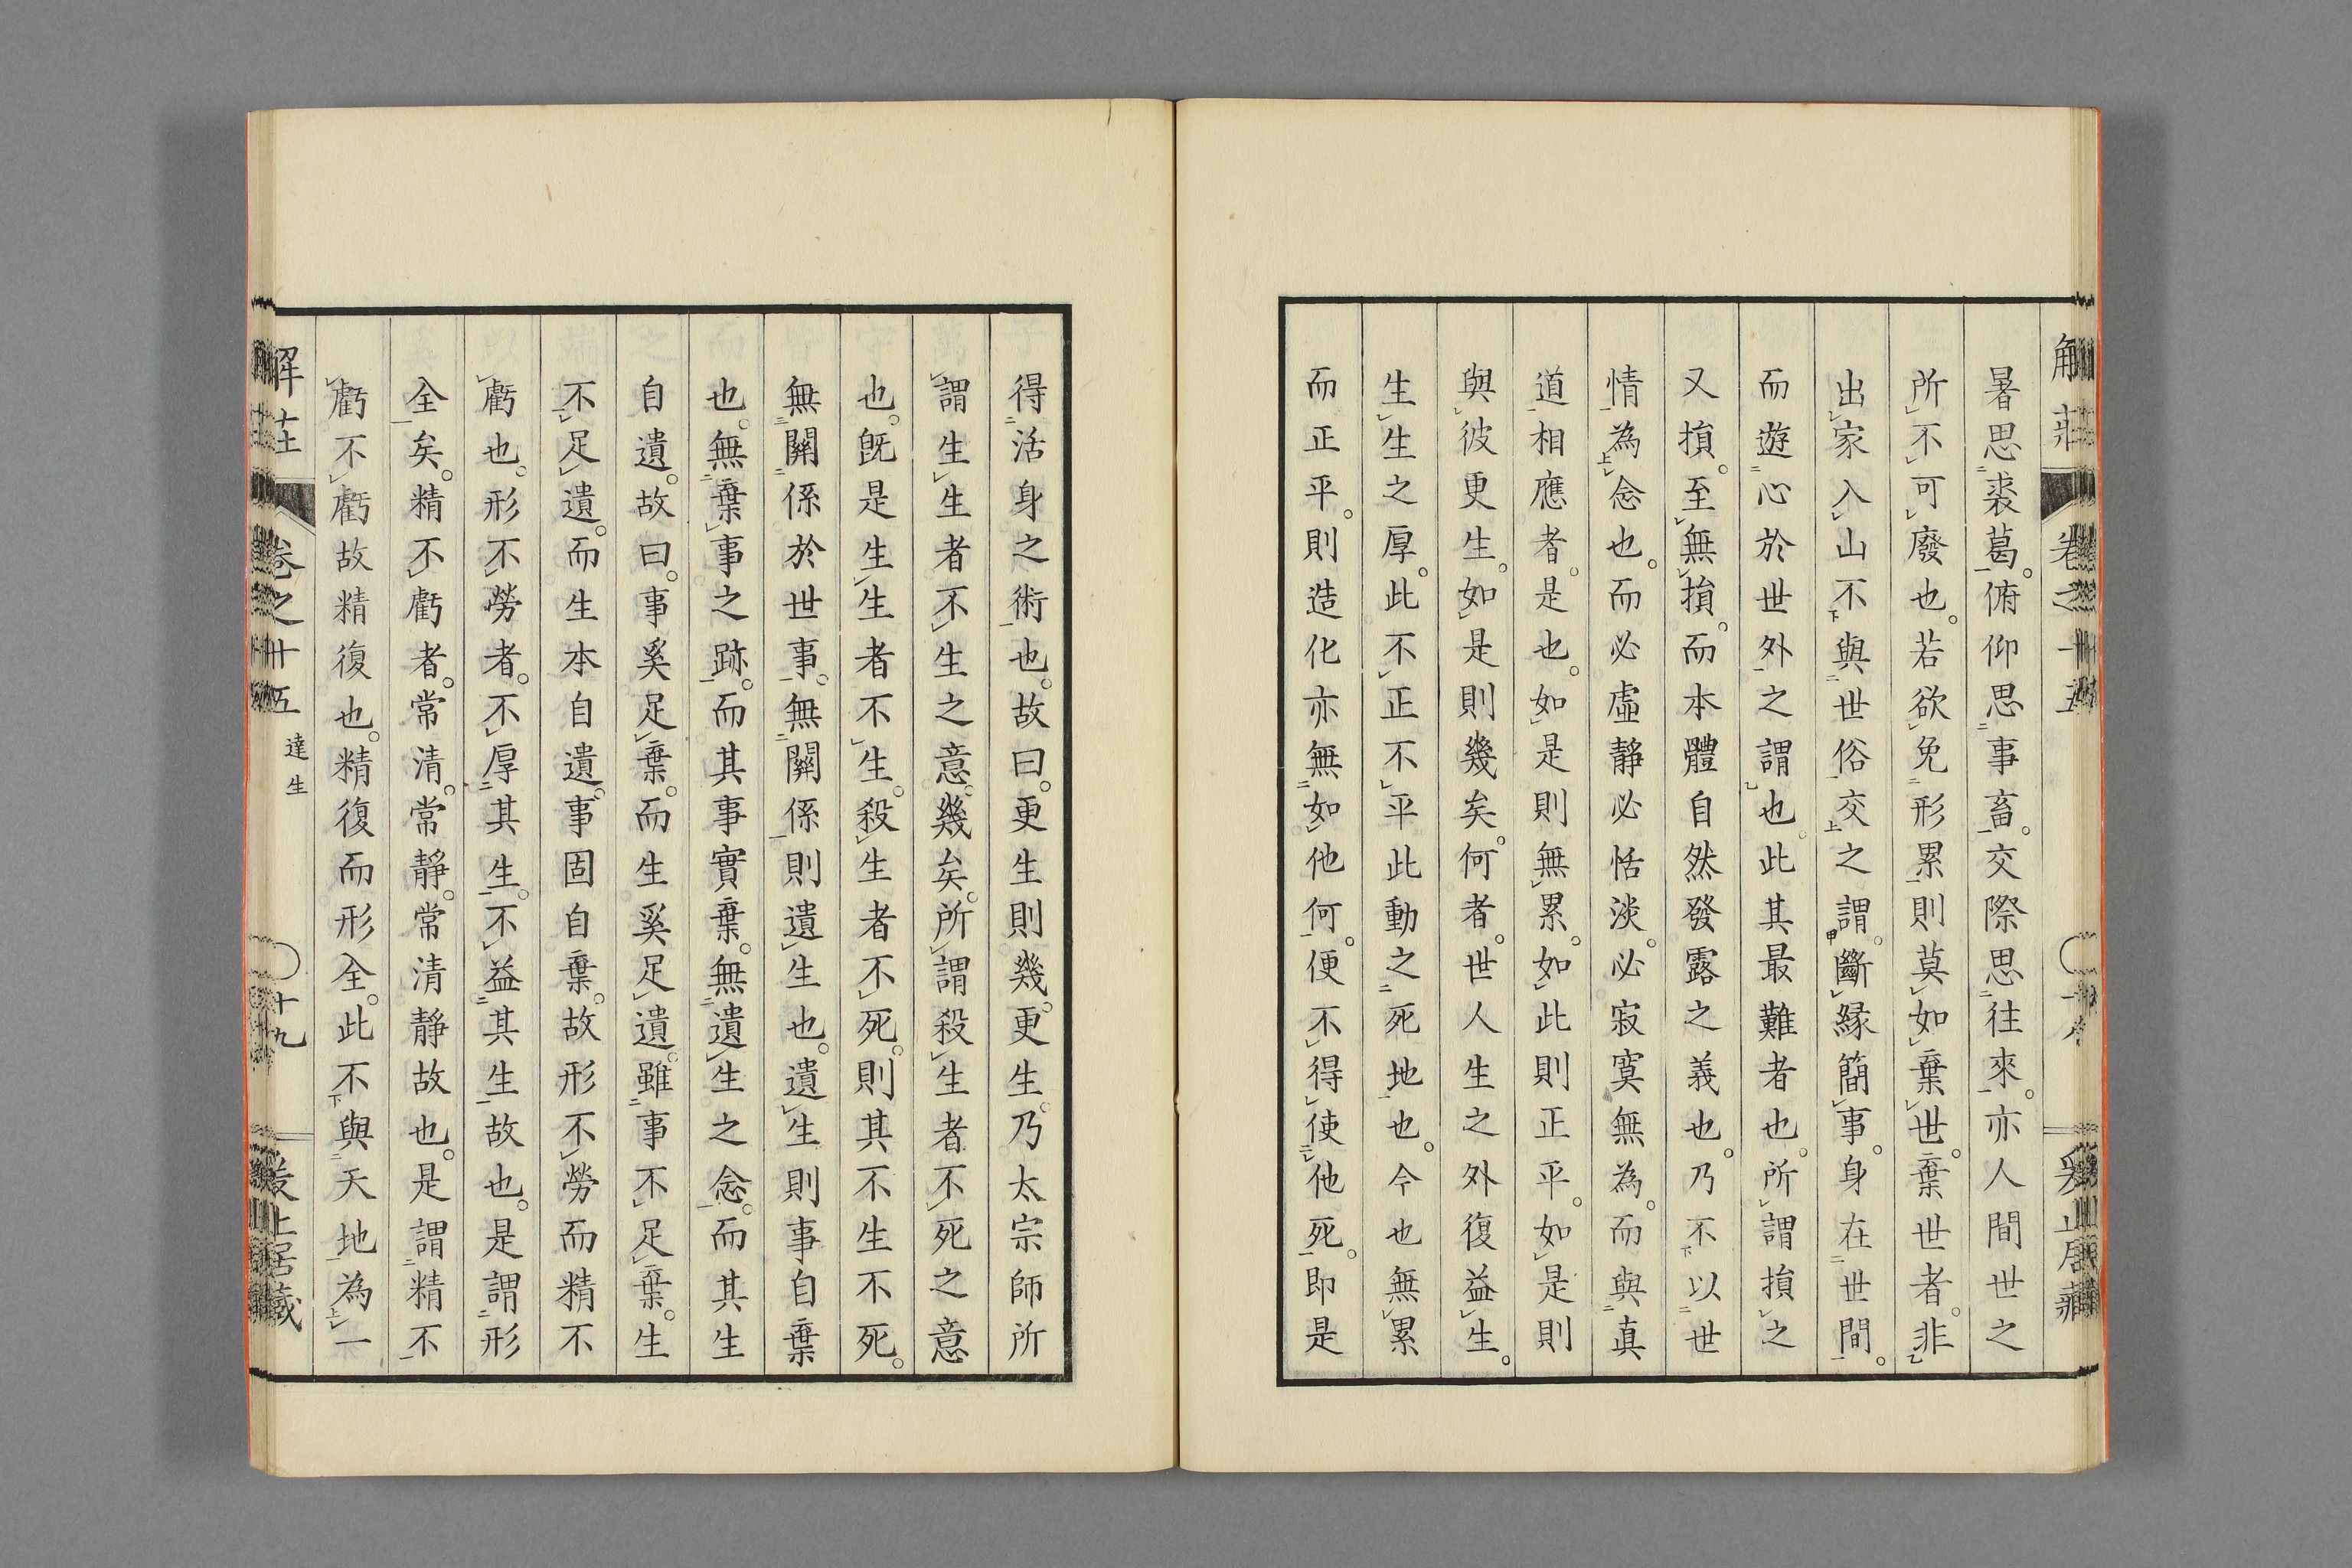 暑思裘葛。俯仰思事畜。交際思往來。亦人間世之
所不可廢也。若欲免形累則莫如棄世。棄世者。非
出家入山不與世俗交之謂。斷縁簡事。身在世間。
而遊心於世外之謂也。此其最難者也。所謂損之
又損。至無損。而本體自然發露之義也。乃不以世
情為念也。而必虛靜必恬淡。必寂寞無為。而與真
道相應者。是也。如是則無累。如此則正平。如是則
與彼更生。如是則幾矣。何者。世人生之外復益生。
生生之厚。此不正不平此動之死地也。今也無累
而正平。則造化亦無如他何。便不得使他死。即是
得活身之術也。故曰。更生則幾。更生。乃太宗師所
謂生生者不生之意。幾矣。所謂殺生者不死之意
也。既是生生者不生。殺生者不死。則其不生不死。
無關係於世事。無關係則遺生也。遺生則事自棄
也。無棄事之跡。而其事實棄。無遺生之念。而其生
自遺。故曰。事奚足棄。而生奚足遺。雖事不足棄。生
不足遺。而生本自遺。事固自棄。故形不勞而精不
虧也。形不勞者。不厚其生。不益其生故也。是謂形
全矣。精不虧者。常清。常靜。常清靜故也。是謂精不
虧不虧故精復也。精復而形全。此不與天地為一
解莊 卷之十五 達生 ○十九